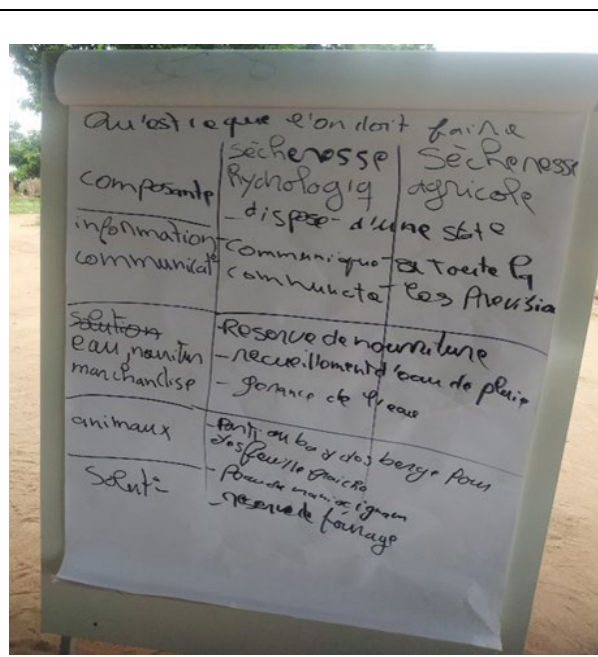 Qu'est ce que l'on doit faire
composante
sècheresse
hychologiq
Sècheresse
agricole
information
communicat
- dispose d'une state
communique à toute la
communcta les Previsia
solution
eau, nourritur
marchandise
- Reserve de nourriture
- recueillement d'eau de pluie
- gerance de l'eau
animaux
- Parti au bord des berge pour
des feuille fraiche
Soluti
- Peau de manioc ignam
- reserve de fourrage